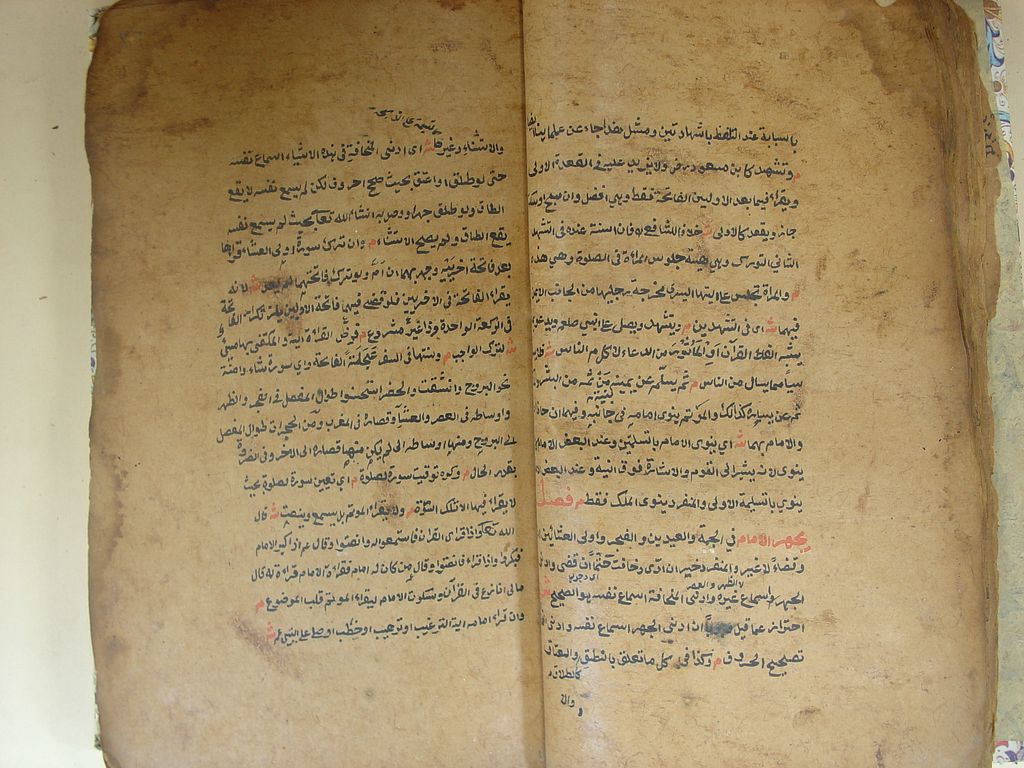 بالسبابة عند التلفظ بالشهادتين ومثل هذا جاء عن علمائنا ايضا
م وتشهد كابن مسعود رض ولا يزيد عليه فى القعدة الاولى
ويقرأ فيما بعد الاوليين الفاتحة فقط وهى افضل وان سبح او سكت
جاز ويقعد كالاولى ش خلافا للشافعى فان السنة عنده فى التشهد
الثانى التورك وهى هيئة جلوس المرأة فى الصلوة وهى هذا
م والمرأة تجلس على اليتها اليسرى مخرجة رجليها من الجانب الايمن
فيهما ش اى فى التشهدين م ويتشهد ويصلى على النبى صلعم ويدعو
يشبه الفاظ القرآن او المأثور من الدعاء لا كلام الناس ش فلا
شيأ مما يسأل من الناس م ثم يسلم عن يمينه بنية من ثمه من البشر
ثم عن يساره كذلك والمؤتم ينوى امامه فى جانبه وفيهما ان حاذاه
والامام بهما ش اى ينوى الامام بالتسليمتين وعند البعض الامام
ينوى لانه يشير الى القوم والاشارة فوق النية وعند البعض الامام
ينوى بالتسليمة الاولى والمنفرد ينوى الملك فقط م فصل
يجهر الامام فى الجمعة والعيدين والفجر واولى العشائين
وقضاء لا غير والمنفرد خير ان ادى وخافت حتما ان قضى وادنى
لا الظهر والعصر
اى وجوبا
الجهر اسماع غيره وادنى المخافتة اسماع نفسه هو الصحيح ش
احتراز عما قيل ان ادنى الجهر اسماع نفسه وادنى
تصحيح الحروف م وكذا فى كل ما تعلق بالنطق والعتاق
كالطلاق
والا
والاستثناء وغيرها ش اى ادنى المخافتة فى هذه الاشياء اسماع نفسه
حتى لو طلق او اعتق بحيث صحح الحروف لكن لم يسمع نفسه لا يقع
الطلاق ولو طلق جهرا ووصل به انشاء الله تعالى بحيث لم يسمع نفسه
يقع الطلاق ولم يصح الاستثناء م وان ترك سورة اولى العشاء قرأها
بعد فاتحة اخرييه وجهر بهما ان ام ولو ترك فاتحتهما لم يعد ش لانه
يقرأ الفاتحة فى الاخريين فلو قضى فيهما فاتحة الاوليين يلزم تكرار الفاتحة
فى الركعة الواحدة وذا غير مشروع م وفرض القراءة آية والمكتفى بها مسئ
ش لترك الواجب م وسنتها فى السفر عجلة الفاتحة واى سورة شاء وامنة
نحو البروج وانشقت والحضر استحسنوا طوال المفصل فى الفجر والظهر
واوساطه فى العصر والعشاء وقصاره فى المغرب ومن الحجرات طوال المفصل
الى البروج ومنها اوساطه الى لم يكن ومنها قصاره الى الآخر وفى الضرورة
بقدر الحال م وكره توقيت سورة لصلوة م اى تعيين سورة لصلوة بحيث
لا يقرأ فيها الا تلك السورة م ولا يقرأ المؤتم بل يسمع وينصت ش قال
الله تعالى واذا قرئ القرآن فاستمعوا له وانصتوا وقال عم اذا كبر الامام
فكبروا واذا قرأ فانصتوا وقال من كان له امام فقراءة الامام قراءة له قال
مالى انازع فى القرآن وسكوت الامام ليقرأ المؤتم قلب الموضوع م
وان قرأ امامه آية الترغيب او ترهيب او خطب او صلى على النبى ش